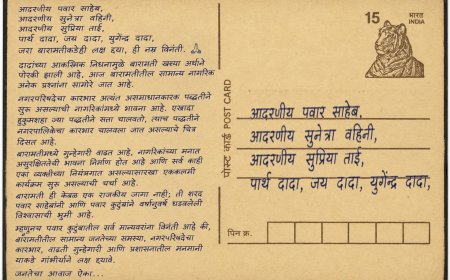 आदरणीय पवार साहेब,
आदरणीय सुनेत्रा वहिनी,
आदरणीय सुप्रिया ताई,
पार्थ दादा, जय दादा, युगेंद्र दादा,
जरा बारामतीकडेही लक्ष द्या, ही नम्र विनंती. 🙏
दादांच्या आकस्मिक निधनामुळे बारामती खऱ्या अर्थाने
पोरकी झाली आहे. आज बारामतीतील सामान्य नागरिक
अनेक प्रश्नांना सामोरे जात आहे.
नगरपरिषदेचा कारभार अत्यंत असमाधानकारक पद्धतीने
सुरू असल्याची नागरिकांमध्ये भावना आहे. एखादा
हुकुमशहा ज्या पद्धतीने सत्ता चालवतो, त्याच पद्धतीने
नगरपालिकेचा कारभार चालवला जात असल्याचे चित्र
दिसत आहे.
बारामतीमध्ये गुन्हेगारी वाढत आहे, नागरिकांच्या मनात
असुरक्षिततेची भावना निर्माण होत आहे आणि सर्व काही
एका व्यक्तीच्या नियंत्रणात असल्यासारखा एककलमी
कार्यक्रम सुरू असल्याची चर्चा आहे.
बारामती ही केवळ एक राजकीय जागा नाही; ती शरद
पवार साहेबांनी आणि पवार कुटुंबांने वर्षानुवर्षे घडवलेली
विश्वासाची भूमी आहे.
म्हणूनच पवार कुटुंबातील सर्व मान्यवरांना विनंती आहे की,
बारामतीतील सामान्य जनतेच्या समस्या, नगरपरिषदेचा
कारभार, वाढती गुन्हेगारी आणि प्रशासनातील मनमानी
याकडे गांभीर्याने लक्ष द्यावे.
जनतेचा आवाज ऐका...
पोस्ट कार्ड POST CARD
15 भारत
INDIA
आदरणीय पवार साहेब,
आदरणीय सुनेत्रा वहिनी,
आदरणीय सुप्रिया ताई,
पार्थ दादा, जय दादा, युगेंद्र दादा,
पिन क्र.